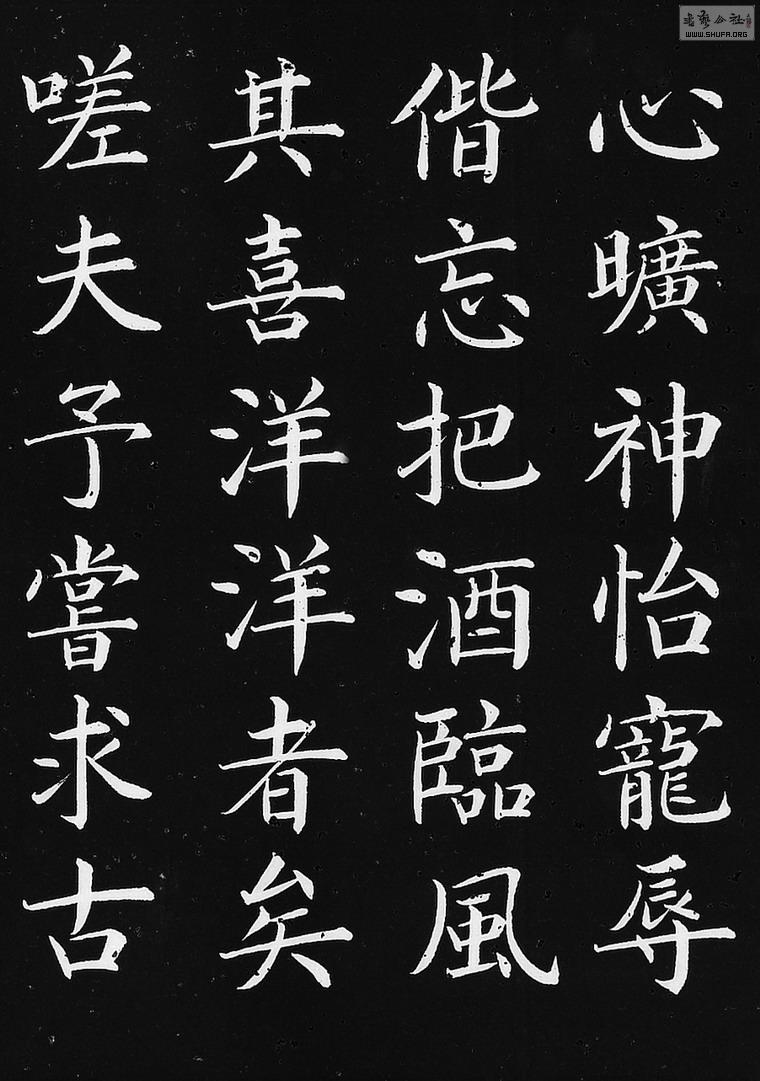 心曠神怡寵辱
偕忘把酒臨風
其喜洋洋者矣
嗟夫予嘗求古
書藝公社
WWW.SHUFA.ORG